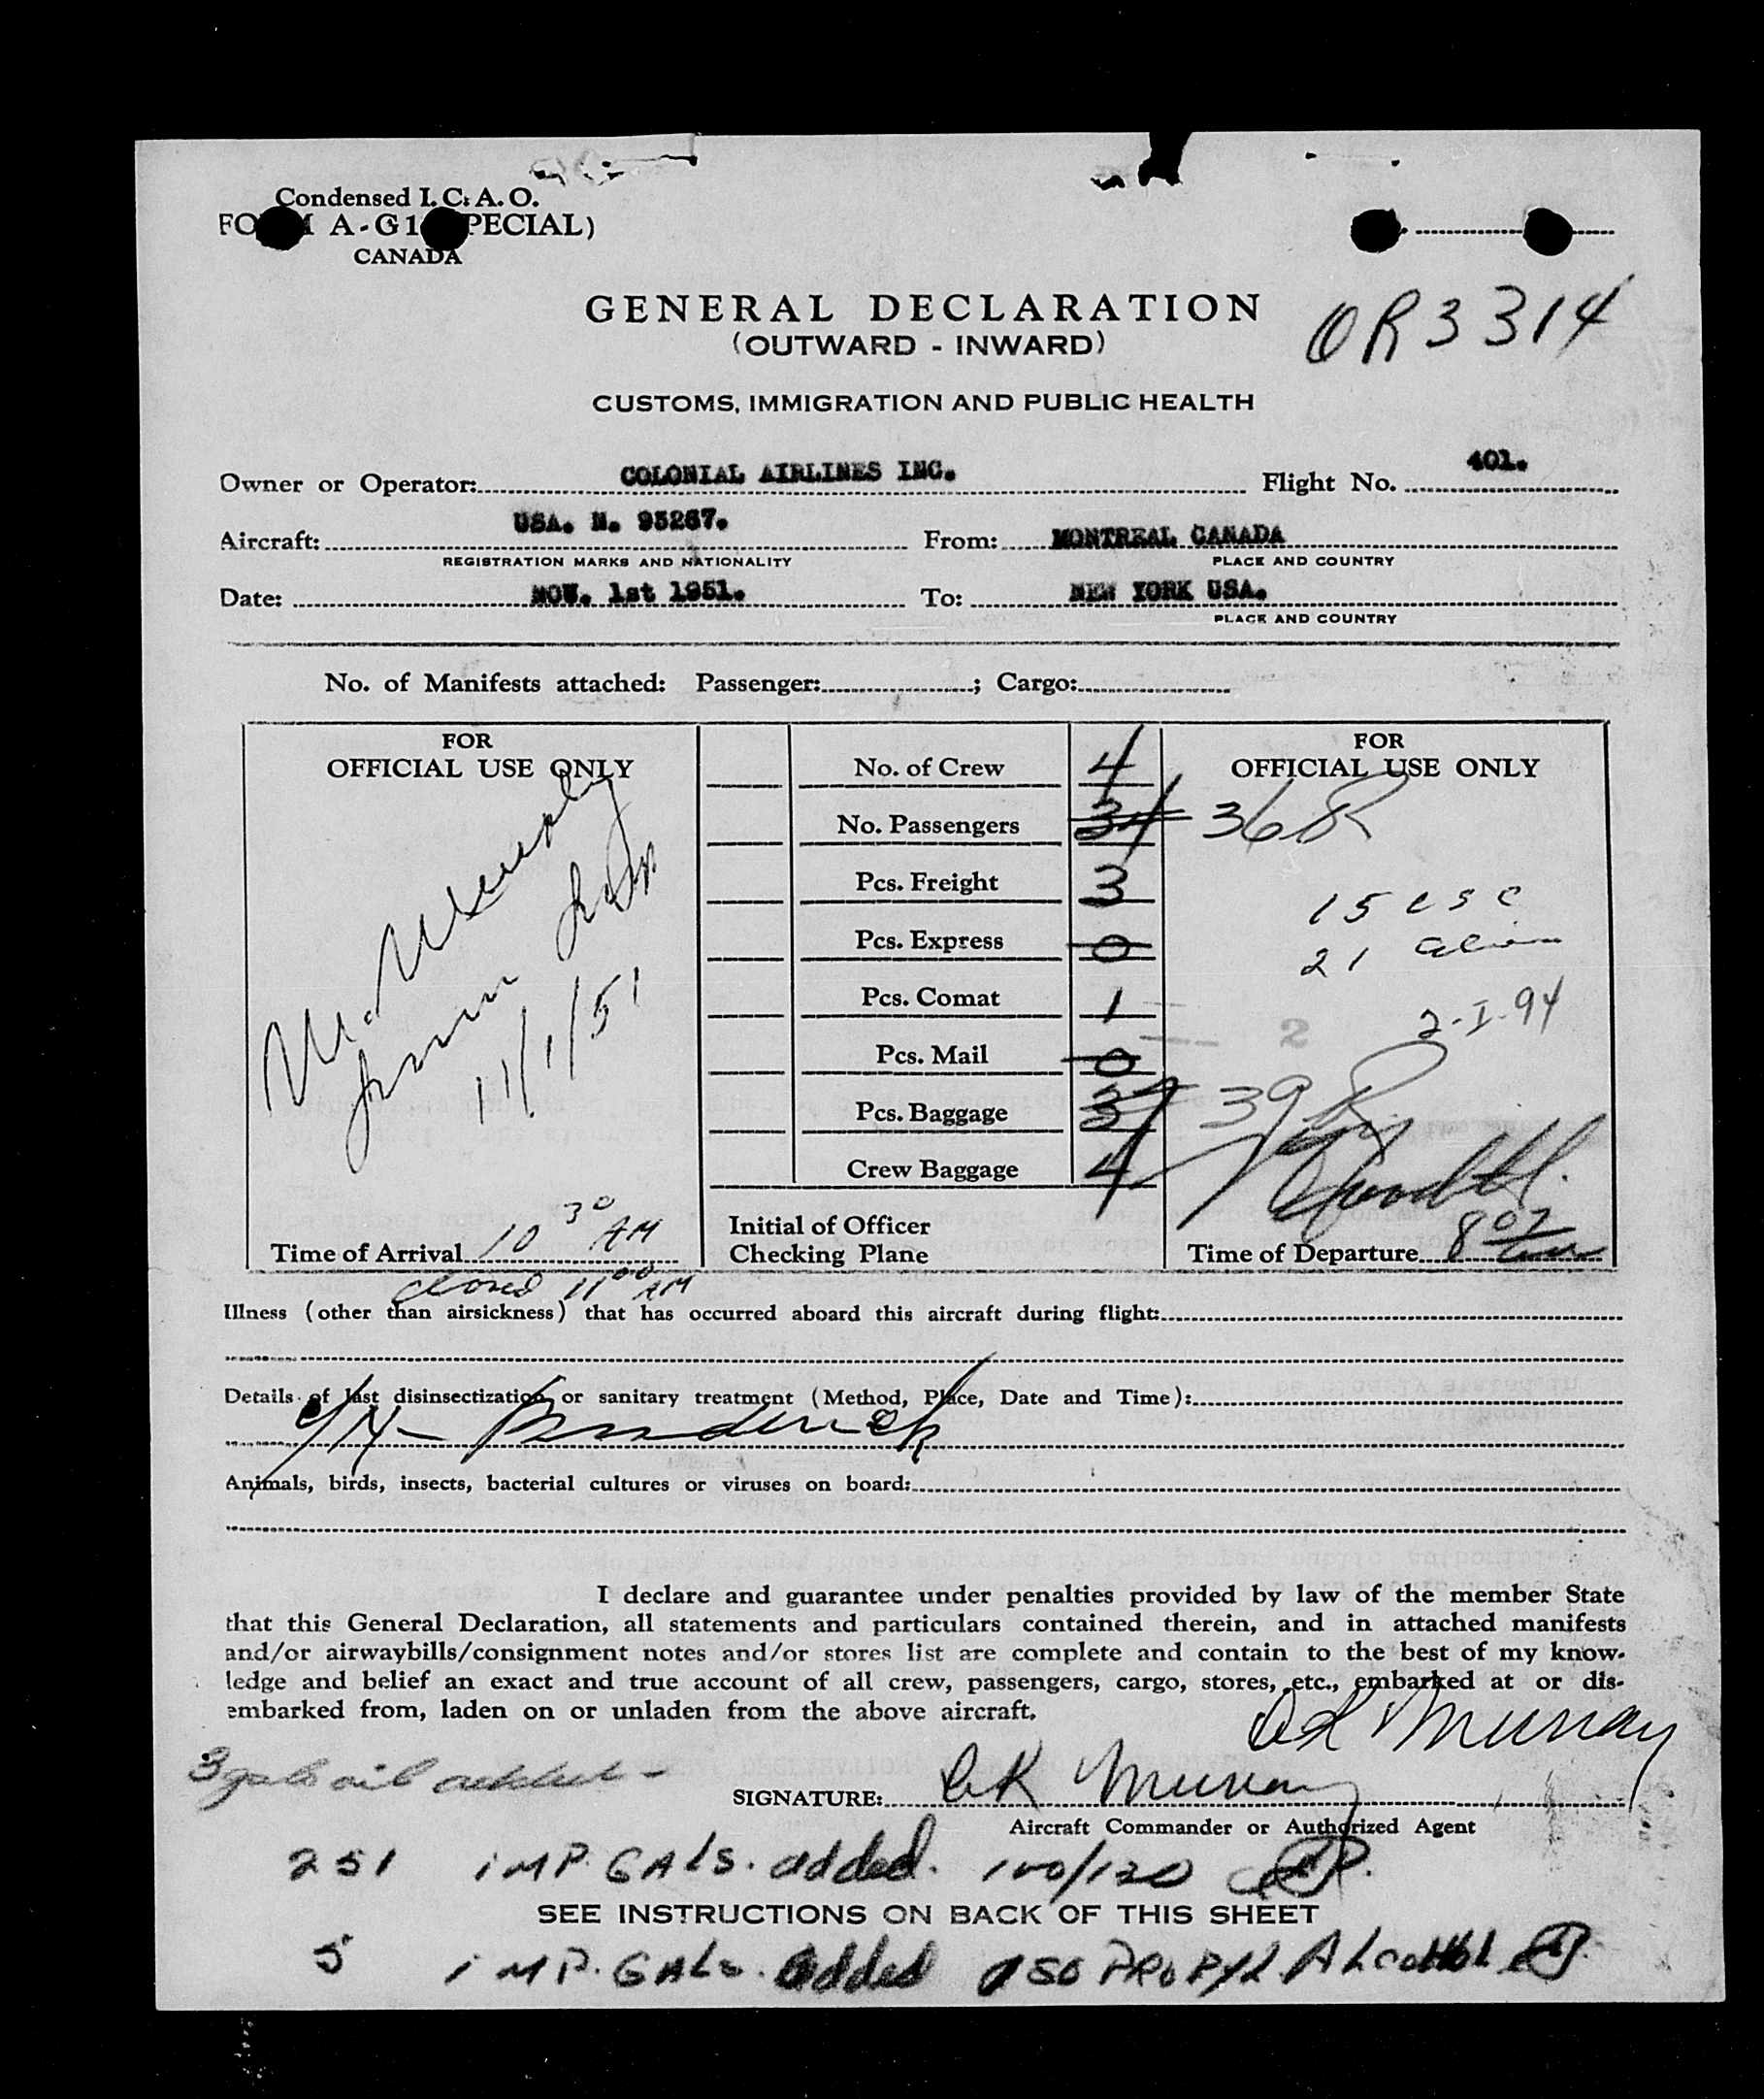 Condensed I. C. A. O.
A-G1
CANADA
GENERAL DECLARATION
(OUTWARD - INWARD)
OR 3314
CUSTOMS, IMMIGRATION AND PUBLIC HEALTH
Owner or Operator: COLONIAL AIRLINES INC. Flight No. 401.
Aircraft: USA. N. 93267. From: MONTREAL CANADA
REGISTRATION MARKS AND NATIONALITY PLACE AND COUNTRY
Date: NOV. 1st 1951. To: NEW YORK USA.
PLACE AND COUNTRY
No. of Manifests attached: Passenger: ; Cargo:
FOR
OFFICIAL USE ONLY
11/1/51
Time of Arrival 10 30 AM
closed 11 00 AM
No. of Crew 4
No. Passengers 34
Pcs. Freight 3
Pcs. Express 0
Pcs. Comat 1
Pcs. Mail 0
Pcs. Baggage 37
Crew Baggage 4
Initial of Officer
Checking Plane
FOR
OFFICIAL USE ONLY
36
15 USC
21 alien
2-I-94
2
39
Time of Departure 8 07
Illness (other than airsickness) that has occurred aboard this aircraft during flight:
Details of last disinsectization or sanitary treatment (Method, Place, Date and Time):
Animals, birds, insects, bacterial cultures or viruses on board:
I declare and guarantee under penalties provided by law of the member State
that this General Declaration, all statements and particulars contained therein, and in attached manifests
and/or airwaybills/consignment notes and/or stores list are complete and contain to the best of my know-
ledge and belief an exact and true account of all crew, passengers, cargo, stores, etc., embarked at or dis-
embarked from, laden on or unladen from the above aircraft.
Murray
3 gals oil added -
SIGNATURE: Murray
Aircraft Commander or Authorized Agent
251 IMP. GALS. added. 100/120
SEE INSTRUCTIONS ON BACK OF THIS SHEET
5 IMP. GALS. added ISO PROPYL Alcohol